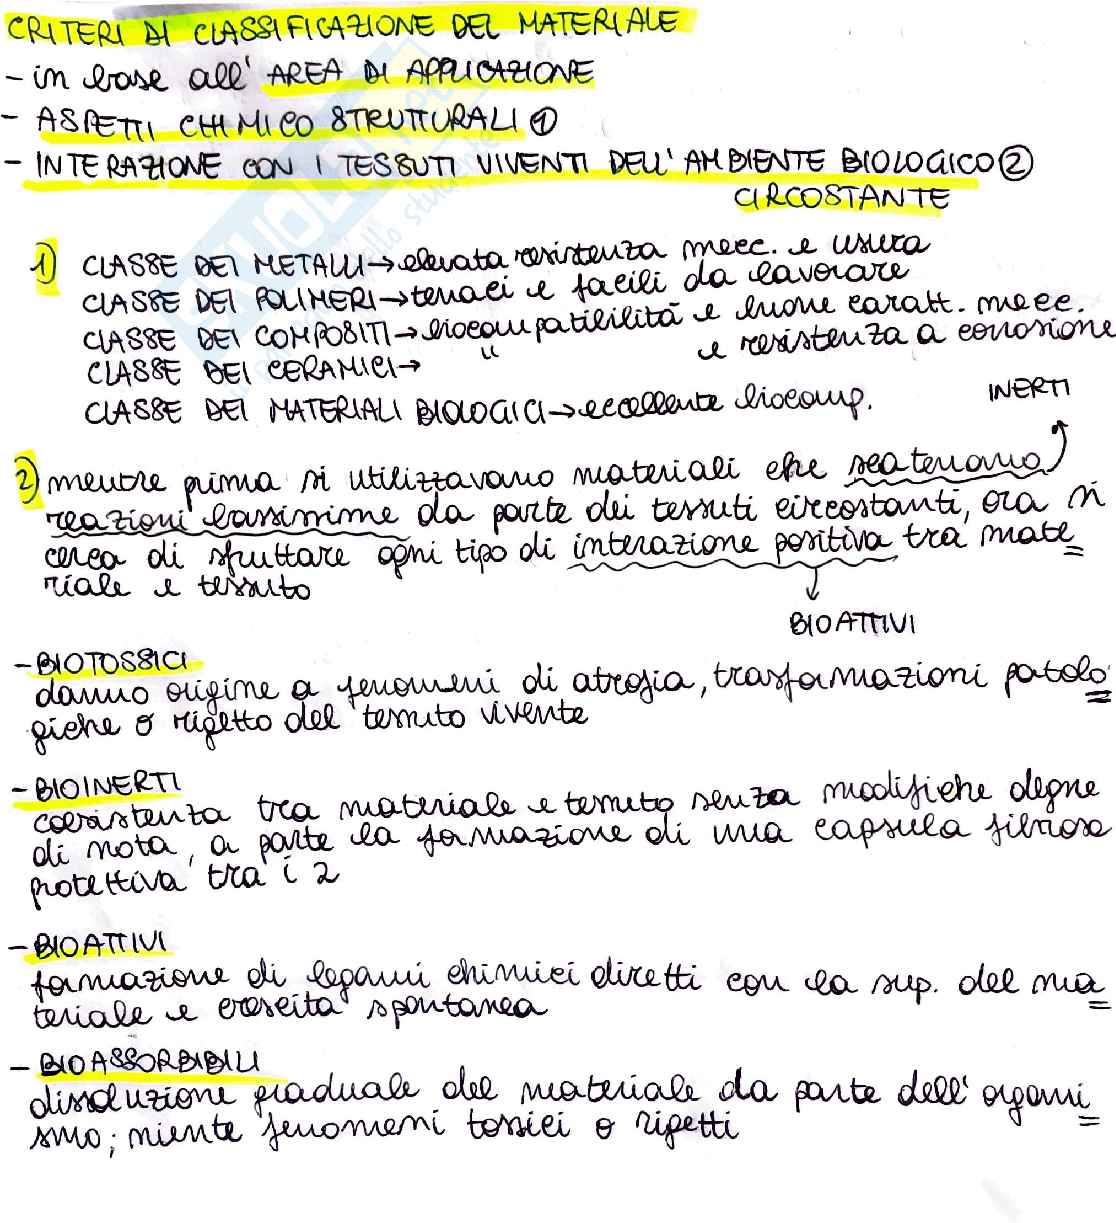 CRITERI DI CLASSIFICAZIONE DEL MATERIALE
- in base all' AREA DI APPLICAZIONE
- ASPETTI CHIMICO STRUTTURALI ①
- INTERAZIONE CON I TESSUTI VIVENTI DELL' AMBIENTE BIOLOGICO ②
CIRCOSTANTE
1) CLASSE DEI METALLI → elevata resistenza mecc. e usura
CLASSE DEI POLIMERI → tenaci e facili da lavorare
CLASSE DEI COMPOSITI → biocompatibilità e buone caratt. mecc.
e resistenza a corrosione
CLASSE DEI CERAMICI → "
CLASSE DEI MATERIALI BIOLOGICI → eccellente biocomp.
INERTI
2) mentre prima si utilizzavano materiali che scatenano
reazioni bassissime da parte dei tessuti circostanti, ora si
cerca di sfruttare ogni tipo di interazione positiva tra mate=
riale e tessuto
BIOATTIVI
- BIOTOSSICI
danno origine a fenomeni di atrofia, trasformazioni patolo=
giche o rigetto del tessuto vivente
- BIOINERTI
coesistenza tra materiale e tessuto senza modifiche degne
di nota, a parte la formazione di una capsula fibrosa
protettiva tra i 2
- BIOATTIVI
formazione di legami chimici diretti con la sup. del ma=
teriale e crescita spontanea
- BIOASSORBIBILI
dissoluzione graduale del materiale da parte dell' organi=
smo; niente fenomeni tossici o rigetti